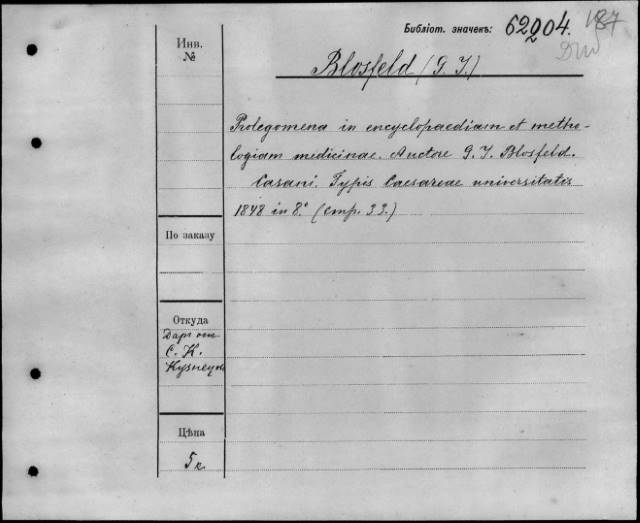 Библіот. значекъ: 62204.
187
Инв.
№
Blosfeld (G. J.)
Prolegomena in encyclopaediam et metho-
logiam medicinae. Auctore G. J. Blosfeld.
Casani. Typis Caesareae universitatis
1848 in 8.° (стр. 33.)
По заказу
Откуда
Даръ от
С. К.
Кузнецова
Цѣна
5 к.